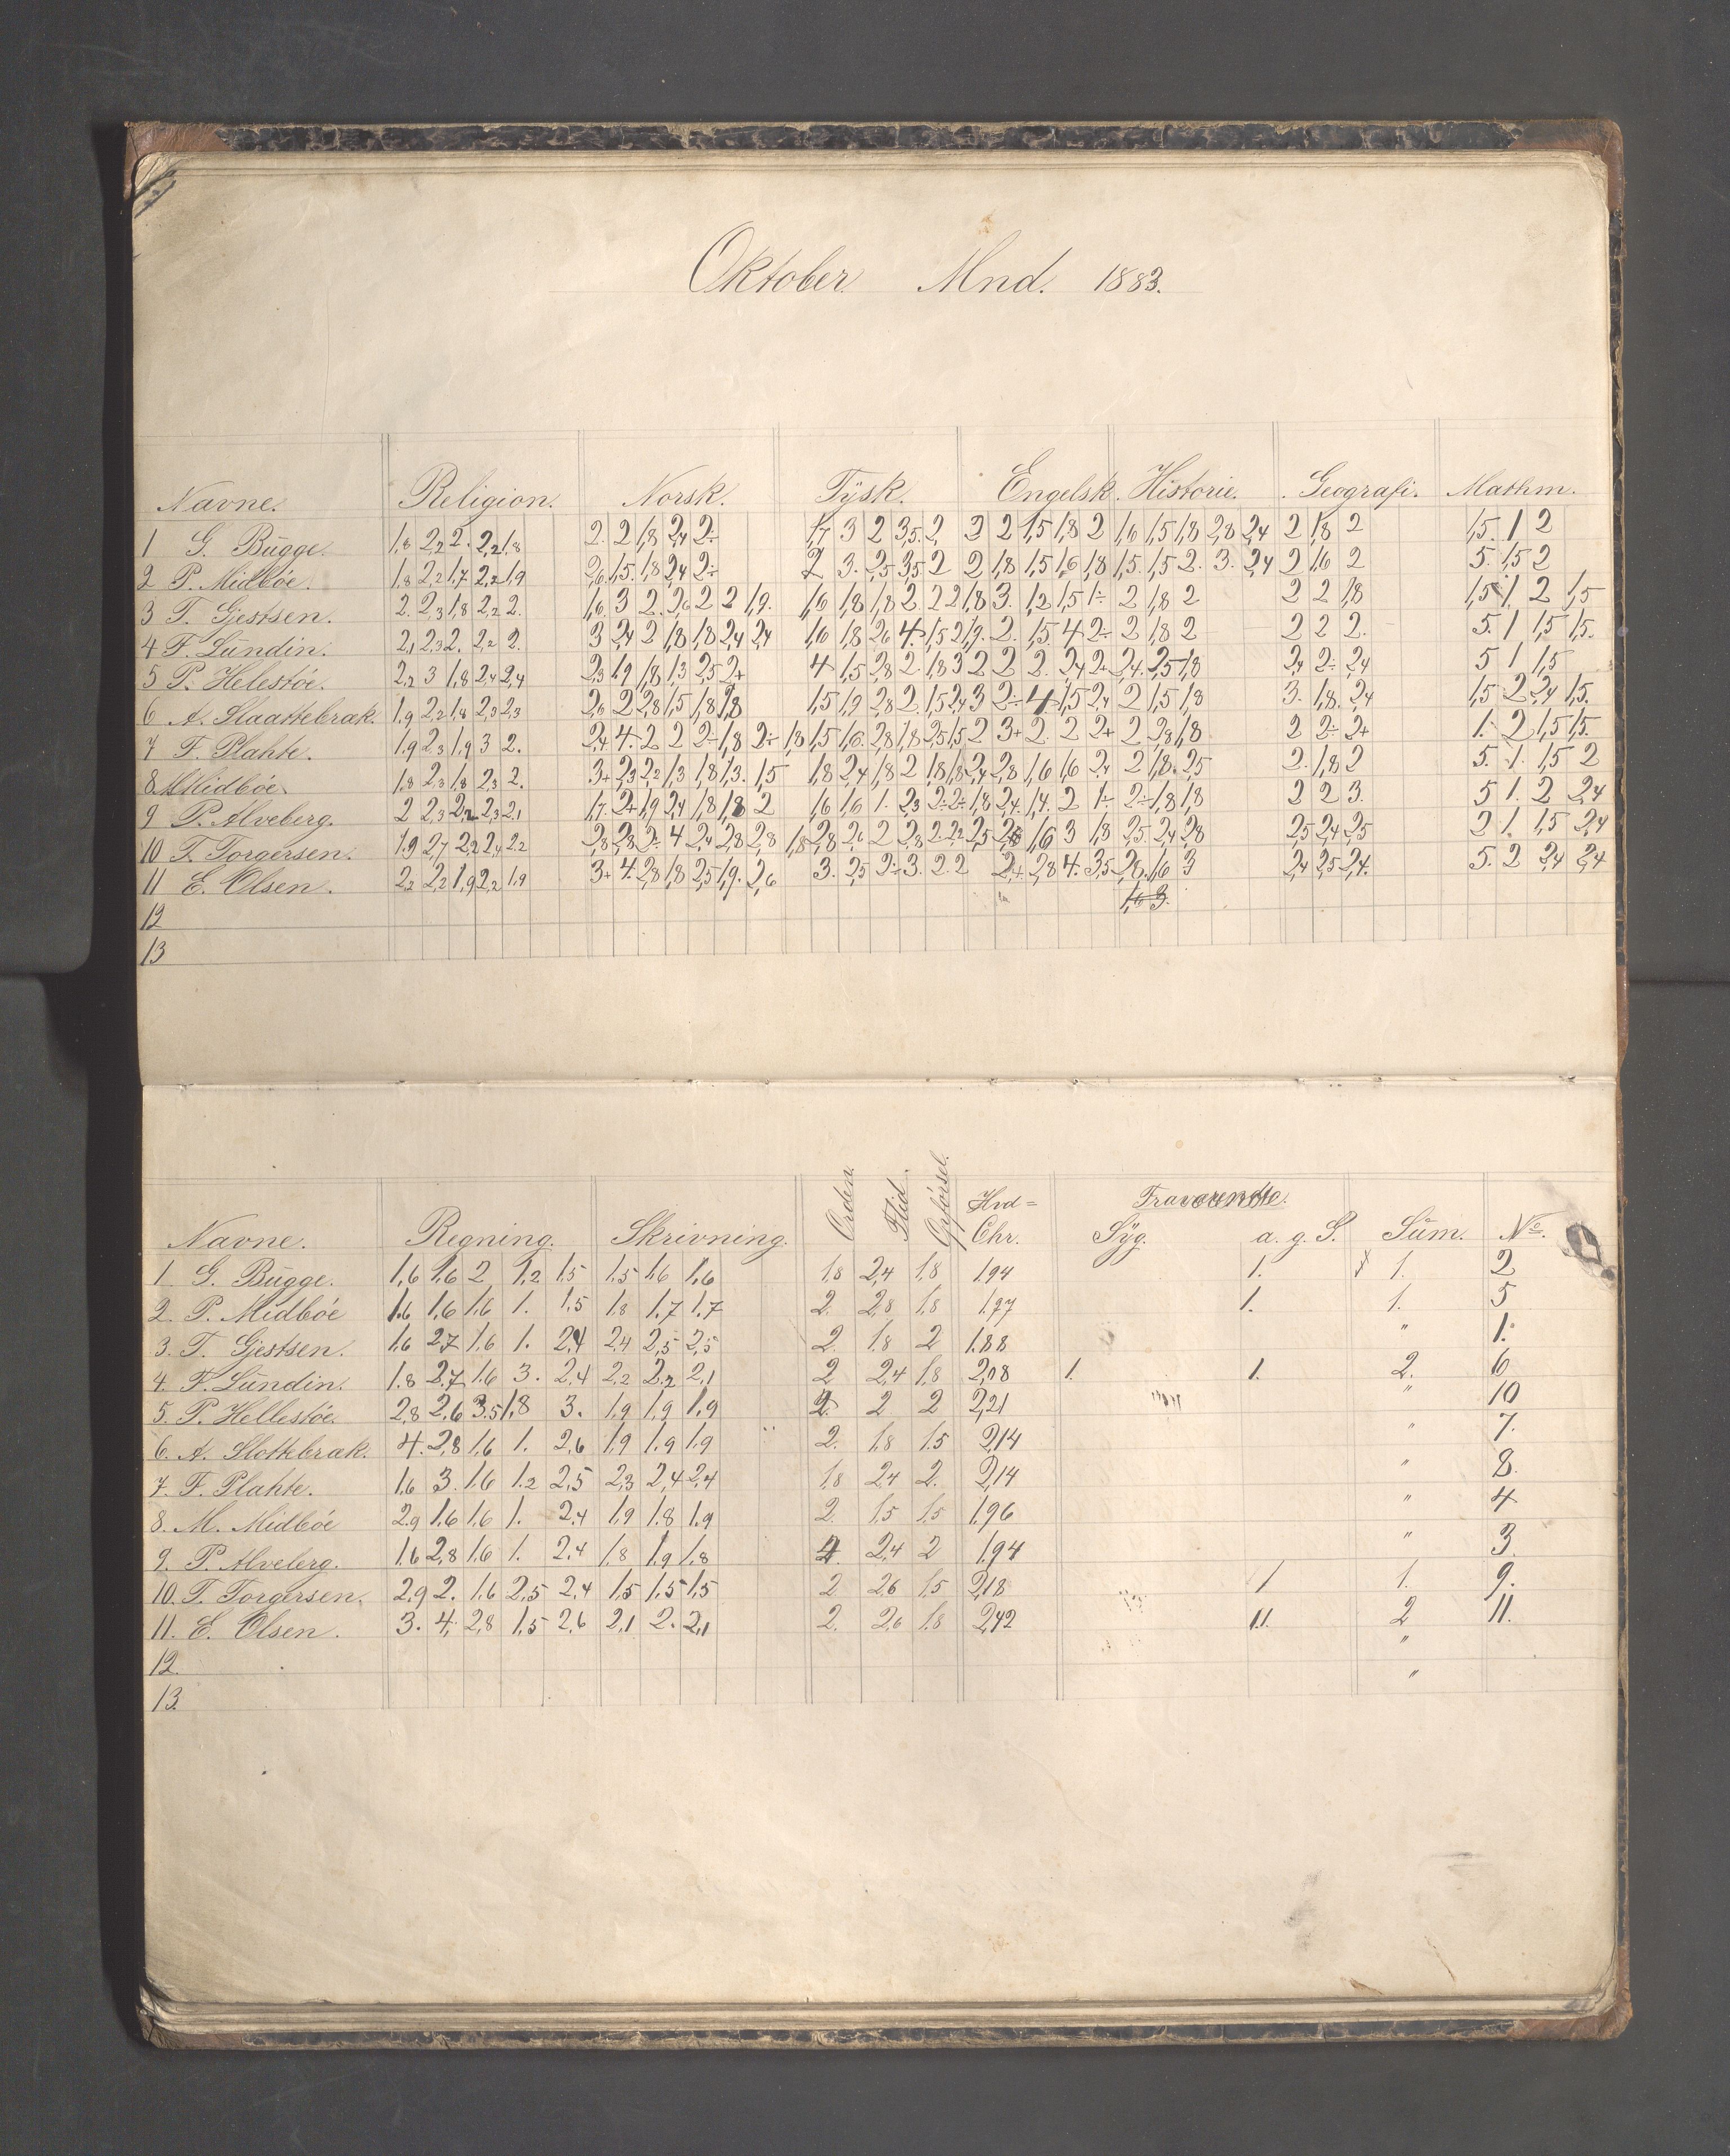 Oktober Mnd. 1883.
Navne. Religion. Norsk. Tÿsk. Engelsk. Historie. Geografi. Mathm.
1 G. Bŭgge. 1,8 2,2 2. 2,2 1,8 2. 2 1,8 2,4 2÷ 1,7 3 2 3,5. 2 2 2 1,5 1,8 2 1,6 1,5 1,8 2,8 2,4 2 1,8 2 1,5. 1 2
2 P. Midbóe. 1,8 2,2 1,7 2,2 1,9 2,6. 1,5. 1,8 2,4 2÷ 2 3. 2,5 3,5 2 2 1,8 1,5 1,6 1,8 1,5. 1,5 2. 3. 2,4 2 1,6 2 5. 1,5 2
3 T. Gjestsen. 2. 2,3 1,8 2,2 2. 1,6. 3 2. 2,6 2 2 1,9. 1,6 1,8 1,8 2 2 2 1,8 3. 1,2 1,5 1÷ 2 1,8 2 2 2 1,8 1,5 1, 2 1,5
4 F. Lŭndin. 2,1 2,3 2. 2,2 2. 3 2,4 2 1,8 1,8 2,4 2,4 1,6 1,8 2,6 4. 1,5 2 1,9. 2. 1,5 4 2÷ 2 1,8 2 2 2 2. 5. 1 1,5 1,5.
5 P. Helestóe. 2,2 3 1,8 2,4 2,4 2,3 1,9 1,8 1,3 2,5 2+ 4 1,5 2,8 2. 1,8 3 2 2 2. 2,4 2÷ 2,4. 2,5 1,8 2,4 2÷ 2,4 5 1 1,5
6 A. Slaattebrak. 1,9 2,2 1,8 2,3 2,3 2,6 2 2,8 1,5 1,8 1,8 1,5 1,9 2,8 2. 1,5 2,4 3 2÷ 4 1,5 2,4 2 1,5 1,8 3. 1,8. 2,4 1,5 2 2,4 1,5.
7 F. Plahte. 1,9 2,3 1,9 3 2. 2,4 4. 2 2 2÷ 1,8 2÷ 1,8 1,5 1,6. 2,8 1,8 2,5 1,5 2 3+ 2. 2 2+ 2 2,8 1,8 2 2÷ 2+ 1. 2 1,5 1,5.
8 M Midbóe. 1,8 2,3 1,8 2,3 2. 3+ 2,3 2,2 1,3 1,8 1,3. 1,5 1,8 2,4 1,8 2 1,8 1,8 2,4 2,8 1,6 1,6 2,4 2 1,8. 2,5 2. 1,8 2 5. 1. 1,5 2
9 P. Alveberg. 2 2,3 2,2 2,3 2,1 1,7. 2+ 1,9 2,4 1,8 1,8 2 1,6 1,6 1. 2,3 2÷ 2÷ 1,8 2,4. 1,4. 2 1÷ 2÷ 1,8 1,8 2 2 3. 5 1. 2 2,4
10 T. Torgersen. 1,9 2,7 2,2 2,4 2,2 2,8 2,8 2÷ 4 2,4 2,8 2,8 1,8 2,8 2,6 2 2,8 2. 2,2 2,5 1,6 3 1,8 2,5 2,4 2,8 2,5 2,4 2,5 2 1. 1,5 2,4
11 E. Olsen. 2,2 2,2 1,9 2,2 1,9 3+ 4. 2,8 1,8 2,5 1,9. 2,6 3. 2,5 2÷ 3. 2. 2 2+ 2,8 4. 3,5 2,8. 1,6 3 2,4 2,5 2,4. 5. 2 2,4 2,4
12 1,6 3.
13
Navne. Regning. Skrivning. Orden. Flid. Opförsel. Hvd= Chr. Fraværende. Sÿg. a. g. S. Sŭm. No.
1 G. Bŭgge. 1,6 1,6 2 1,2 1,5 1,5 1,6 1,6 1,8 2,4 1,8 1,94 1. 1. 2
2. P. Midbóe 1,6 1,6 1,6 1. 1,5 1,8 1,7 1,7 2. 2,8 1,8 1,97 1. 1. 5
3. T. Gjestsen. 1,6 2,7 1,6 1. 2,4 2,4 2,5 2,5 2. 1,8 2 1.88 " 1.
4. F. Lŭndin. 1,8 2,7 1,6 3. 2,4 2,2 2,2 2,1 2 2,4 1,8 2,08 1. 1. 2. 6
5. P. Hellestóe. 2,8 2,6 3,5 1,8 3. 1,9 1,9 1,9 2. 2 2 2,21 " 10
6. A. Slottebrak. 4. 2,8 1,6 1. 2,6 1,9 1,9 1,9 2. 1,8 1,5 2,14 " 7.
7. F. Plahte. 1,6 3. 1,6 1,2 2,5 2,3 2,4 2,4 1,8 2,4 2. 2,14 " 8.
8. M. Midbóe 2,9 1,6 1,6 1. 2,4 1,9 1,8 1,9 2. 1,5 1,5 1,96 " 4
9. P. Alveberg. 1,6 2,8 1,6 1. 2,4 1,8 1,9 1,8 2,4 2 1,94 " 3.
10. T. Torgersen. 2,9 2. 1,6 2,5 2,4 1,5 1,5 1,5 2 2,6 1,5 2,18 1 1. 9.
11. E. Olsen. 3. 4, 2,8 1,5 2,6 2,1 2. 2,1 2. 2,6 1,8 2,42 11. 2 11.
12. "
13. "